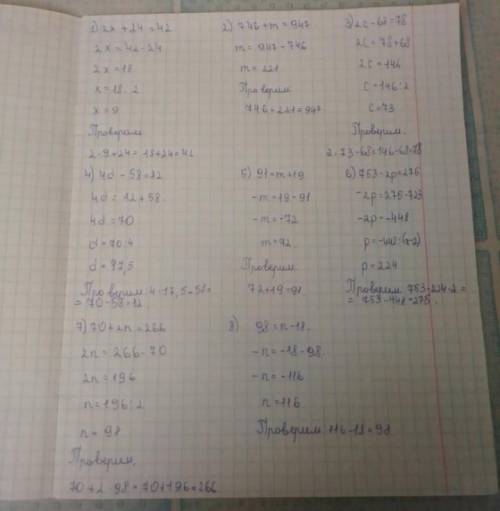 1) 2x + 24 = 42
2x = 42 - 24
2x = 18
x = 18 : 2
x = 9
Проверим
2 · 9 + 24 = 18 + 24 = 42
2) 746 + m = 947
m = 947 - 746
m = 221
Проверим
746 + 221 = 947
3) 2c - 68 = 78
2c = 78 + 68
2c = 146
c = 146 : 2
c = 73
Проверим.
2 · 73 - 68 = 146 - 68 = 78
4) 4d - 58 = 12
4d = 12 + 58
4d = 70
d = 70 : 4
d = 17,5
Проверим: 4 · 17,5 - 58 =
= 70 - 58 = 12.
5) 91 = m + 19
-m = 19 - 91
-m = -72
m = 72
Проверим
72 + 19 = 91
6) 753 - 2p = 275
-2p = 275 - 723
-2p = -448
p = -448 : (-2)
p = 224
Проверим 753 - 224 · 2 =
= 753 - 448 = 275.
7) 70 + 2n = 266
2n = 266 - 70
2n = 196
n = 196 : 2
n = 98
Проверим.
70 + 2 · 98 = 70 + 196 = 266
8) 98 = n - 18.
-n = -18 - 98
-n = -116
n = 116
Проверим 116 - 18 = 98